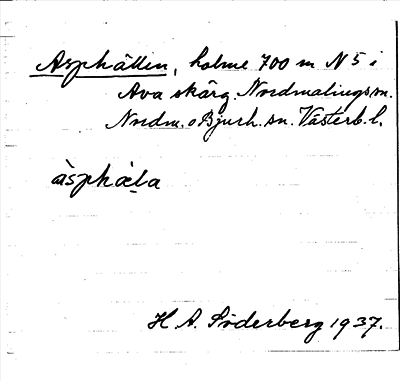 Asphällin, holme 700 m N 5 i
Ava skärg. Nordmalings sn.
Nordm. o Bjurh. sn. Västerb. l.
àsphàla
H. A. Söderberg 1937.